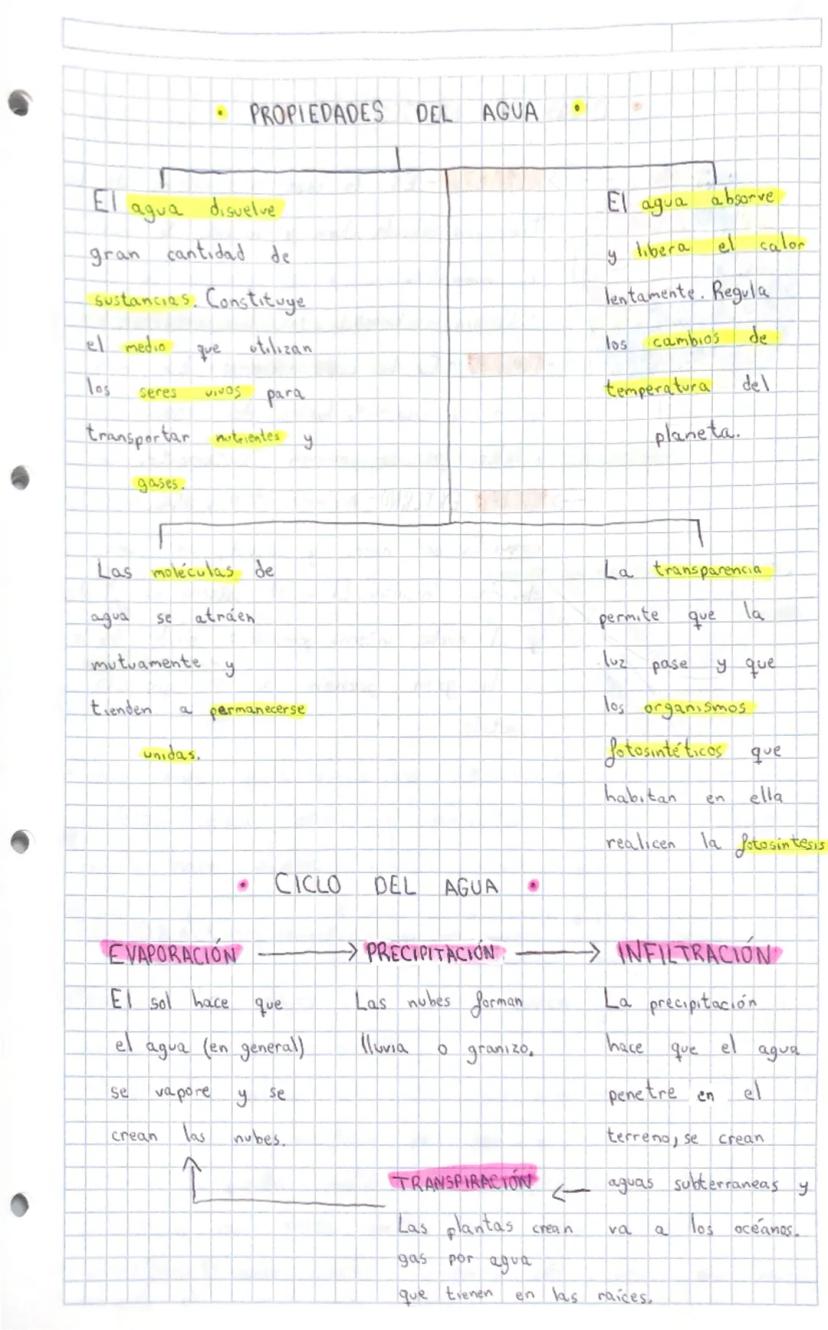 PROPIEDADES DEL AGUA
El agua disuelve
gran cantidad de
sustancias. Constituye
el medio que utilizan
los seres vivos para
transportar nutrientes y
gases.
El agua absorve
y libera el calor
lentamente. Regula
los cambios de
temperatura del
planeta.
Las moléculas de
agua se atráen
mutuamente y
tienden a permanecerse
unidas.
La transparencia
permite que la
luz pase y que
los organismos
fotosintéticos que
habitan en ella
realicen la fotosintesis
CICLO DEL AGUA
EVAPORACIÓN → PRECIPITACIÓN → INFILTRACIÓN
El sol hace que
el agua (en general)
se vapore y se
crean las nubes.
Las nubes forman
lluvia o granizo.
La precipitación
hace que el agua
penetre en el
terreno, se crean
aguas subterraneas y
va a los océanos.
TRANSPIRACIÓN ←
Las plantas crean
gas por agua
que tienen en las raíces.